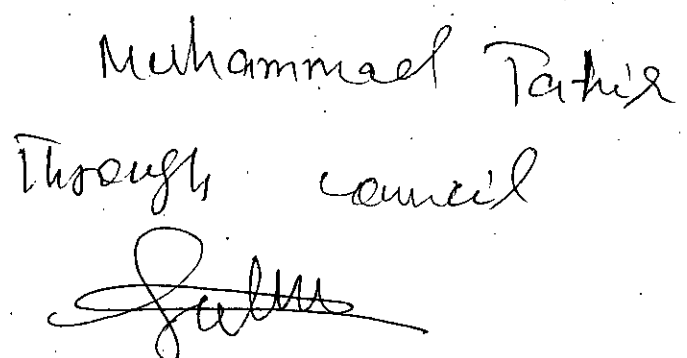 Muhammad Tahir
Through council